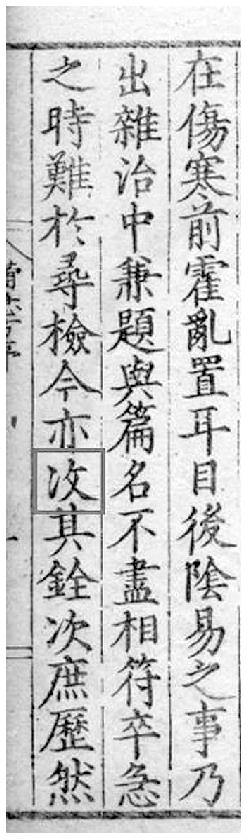 在傷寒前霍亂置耳目後陰易之事乃
出雜治中兼題與篇名不盡相符卒急
之時難於尋檢今亦改其銓次庶歷然